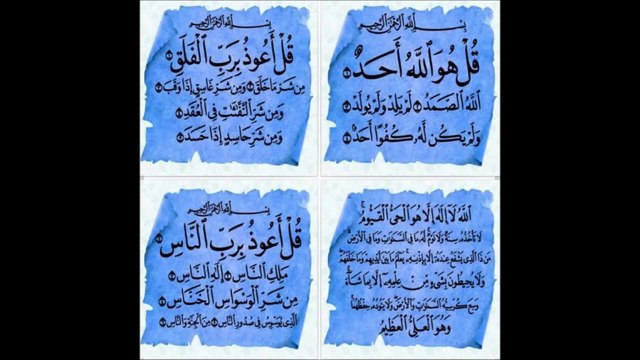 بِسْمِ اللَّهِ الرَّحْمَٰنِ الرَّحِيمِ
قُلْ هُوَ ٱللَّهُ أَحَدٌ
ٱللَّهُ ٱلصَّمَدُ لَمْ يَلِدْ وَلَمْ يُولَدْ
وَلَمْ يَكُن لَّهُۥ كُفُوًا أَحَدٌ
بِسْمِ اللَّهِ الرَّحْمَٰنِ الرَّحِيمِ
قُلْ أَعُوذُ بِرَبِّ ٱلْفَلَقِ
مِن شَرِّ مَا خَلَقَ وَمِن شَرِّ غَاسِقٍ إِذَا وَقَبَ
وَمِن شَرِّ ٱلنَّفَّٰثَٰتِ فِى ٱلْعُقَدِ
وَمِن شَرِّ حَاسِدٍ إِذَا حَسَدَ
ٱللَّهُ لَآ إِلَٰهَ إِلَّا هُوَ ٱلْحَىُّ ٱلْقَيُّومُ
لَا تَأْخُذُهُۥ سِنَةٌ وَلَا نَوْمٌ لَّهُۥ مَا فِى ٱلسَّمَٰوَٰتِ وَمَا فِى ٱلْأَرْضِ
مَن ذَا ٱلَّذِى يَشْفَعُ عِندَهُۥٓ إِلَّا بِإِذْنِهِۦ يَعْلَمُ مَا بَيْنَ أَيْدِيهِمْ وَمَا خَلْفَهُمْ
وَلَا يُحِيطُونَ بِشَىْءٍ مِّنْ عِلْمِهِۦٓ إِلَّا بِمَا شَآءَ
وَسِعَ كُرْسِيُّهُ ٱلسَّمَٰوَٰتِ وَٱلْأَرْضَ وَلَا يَـُٔودُهُۥ حِفْظُهُمَا
وَهُوَ ٱلْعَلِىُّ ٱلْعَظِيمُ
بِسْمِ اللَّهِ الرَّحْمَٰنِ الرَّحِيمِ
قُلْ أَعُوذُ بِرَبِّ ٱلنَّاسِ
مَلِكِ ٱلنَّاسِ إِلَٰهِ ٱلنَّاسِ
مِن شَرِّ ٱلْوَسْوَاسِ ٱلْخَنَّاسِ
ٱلَّذِى يُوَسْوِسُ فِى صُدُورِ ٱلنَّاسِ مِنَ ٱلْجِنَّةِ وَٱلنَّاسِ